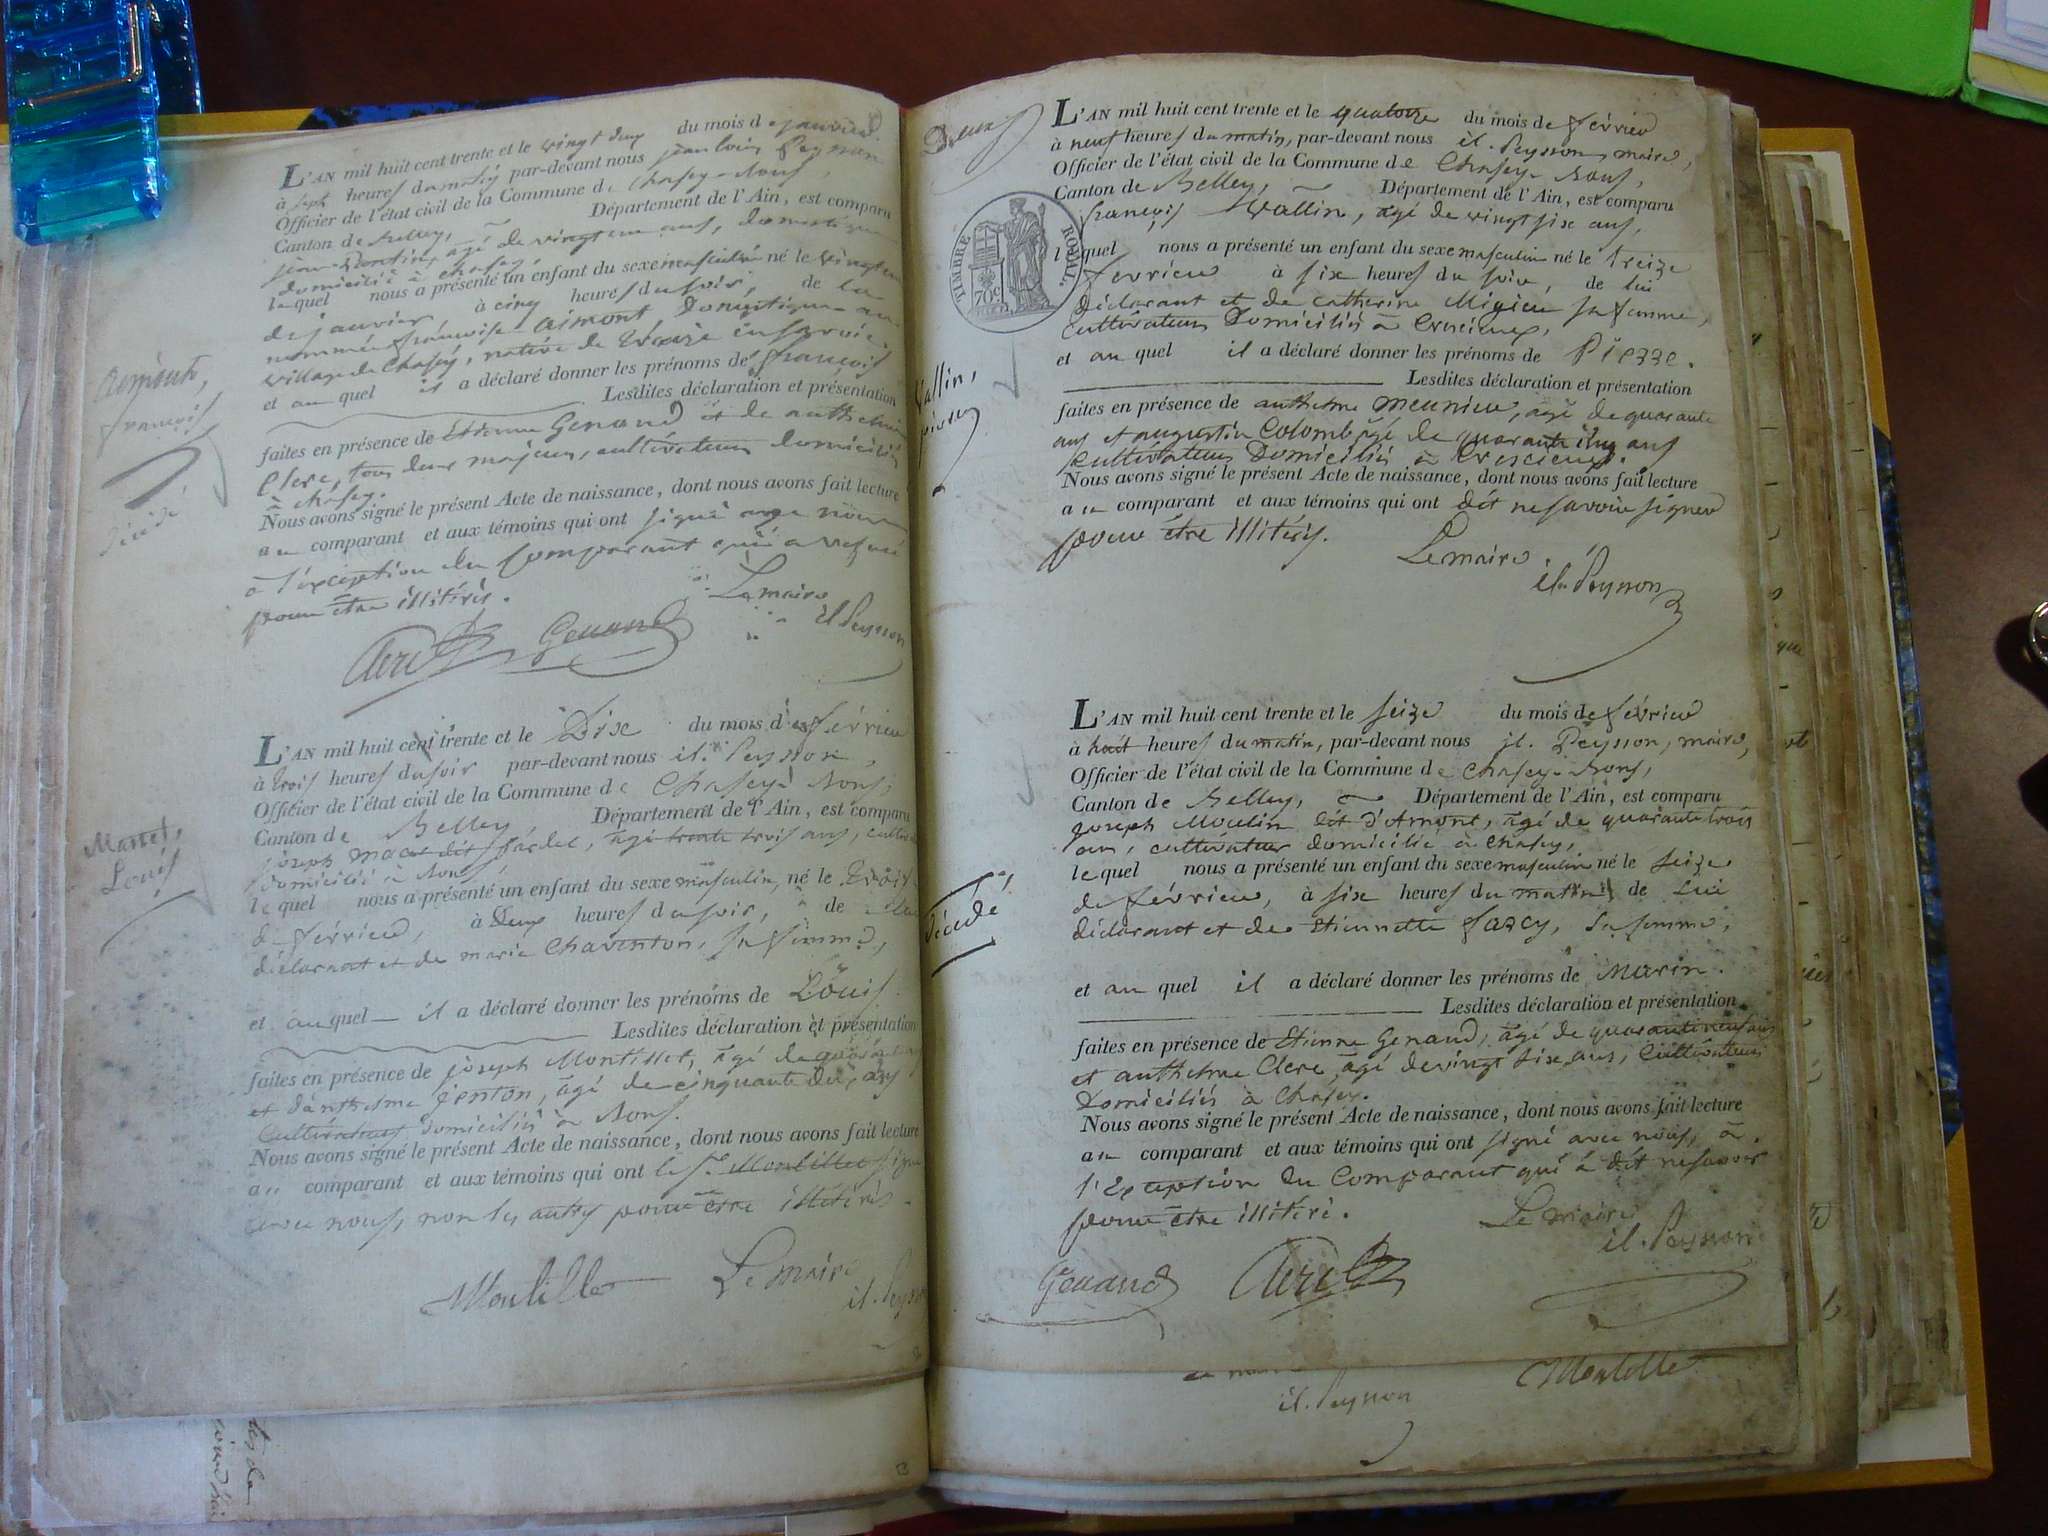 L'AN mil huit cent trente et le vingt deux du mois de janvier
à sept heures du matin par-devant nous jean louis Peysson
Officier de l'état civil de la Commune de Chasey-Bons,
Canton de Belley, Département de l'Ain, est comparu
jean âgé de vingt un ans, domestique
domicilié à Chasey,
lequel nous a présenté un enfant du sexe masculin né le vingt un
de janvier, à cinq heures du soir, de la
nommée françoise Aimont, Domestique au
village de Chasey, native de en Savoie,
et au quel il a déclaré donner les prénoms de françois
Lesdites déclaration et présentation
faites en présence de Etienne Genaud et de anthelme
Clerc, tous deux majeurs, cultivateurs domiciliés
à Chasey.
Nous avons signé le présent Acte de naissance, dont nous avons fait lecture
au comparant et aux témoins qui ont signé avec nous
à l'exception du comparant qui a refusé
pour être illitéré.
Le maire
il Peysson
Clerc Genaud
françois
décédé
L'AN mil huit cent trente et le Dix du mois de février
à trois heures du soir par-devant nous jl. Peysson,
Officier de l'état civil de la Commune de Chasey-Bons,
Canton de Belley Département de l'Ain, est comparu
joseph dit âgé trente trois ans,
domicilié à Bons
lequel nous a présenté un enfant du sexe masculin, né le
de février, à Deux heures du soir, de lui
déclarant et de marie Charenton, sa femme,
et au quel il a déclaré donner les prénoms de Louis.
Lesdites déclaration et présentation
faites en présence de joseph Montillet, âgé de
et d'anthelme jenton, âgé de cinquante deux ans
Cultivateurs domiciliés à Bons.
Nous avons signé le présent Acte de naissance, dont nous avons fait lecture
au comparant et aux témoins qui ont le Sr. Montillet signé
avec nous, non les autres pour être illitérés.
Montillet
Le maire
il. Peysson
Louis
Deux
TIMBRE ROYAL
70c
L'AN mil huit cent trente et le quatorze du mois de février
à neuf heures du matin, par-devant nous il. Peysson, maire,
Officier de l'état civil de la Commune de Chasey-Bons,
Canton de Belley, Département de l'Ain, est comparu
françois Wallin, âgé de vingt six ans,
lequel nous a présenté un enfant du sexe masculin né le treize
février à six heures du soir, de lui
déclarant et de Catherine Migieu sa femme,
cultivateurs Domiciliés à Crescieux,
et au quel il a déclaré donner les prénoms de Pierre.
Lesdites déclaration et présentation
faites en présence de anthelme meunier, âgé de quarante
ans et augustin Colomb âgé de quarante cinq ans
Cultivateurs Domiciliés à Crescieux.
Nous avons signé le présent Acte de naissance, dont nous avons fait lecture
au comparant et aux témoins qui ont dit ne savoir signer
pour être illitérés.
Le maire
il. Peysson
Wallin,
pierre
L'AN mil huit cent trente et le seize du mois de février
à huit heures du matin, par-devant nous jl. Peysson, maire,
Officier de l'état civil de la Commune de Chasey-Bons,
Canton de Belley, Département de l'Ain, est comparu
joseph Moulin dit d'Amont, âgé de quarante trois
ans, cultivateur domicilié à Chasey,
lequel nous a présenté un enfant du sexe masculin né le seize
de février, à six heures du matin de Lui
déclarant et de Etiennette farcy, sa femme,
et au quel il a déclaré donner les prénoms de Marin.
Lesdites déclaration et présentation
faites en présence de Etienne Genaud, âgé de quarante neuf ans
et anthelme Clerc, âgé de vingt six ans, Cultivateurs
Domiciliés à Chasey.
Nous avons signé le présent Acte de naissance, dont nous avons fait lecture
au comparant et aux témoins qui ont signé avec nous, à
l'Exception du Comparant qui à dit ne savoir
pour être illitéré.
Le maire
il. Peysson
Genaud Clerc
décédé
il. Peysson
Montillet